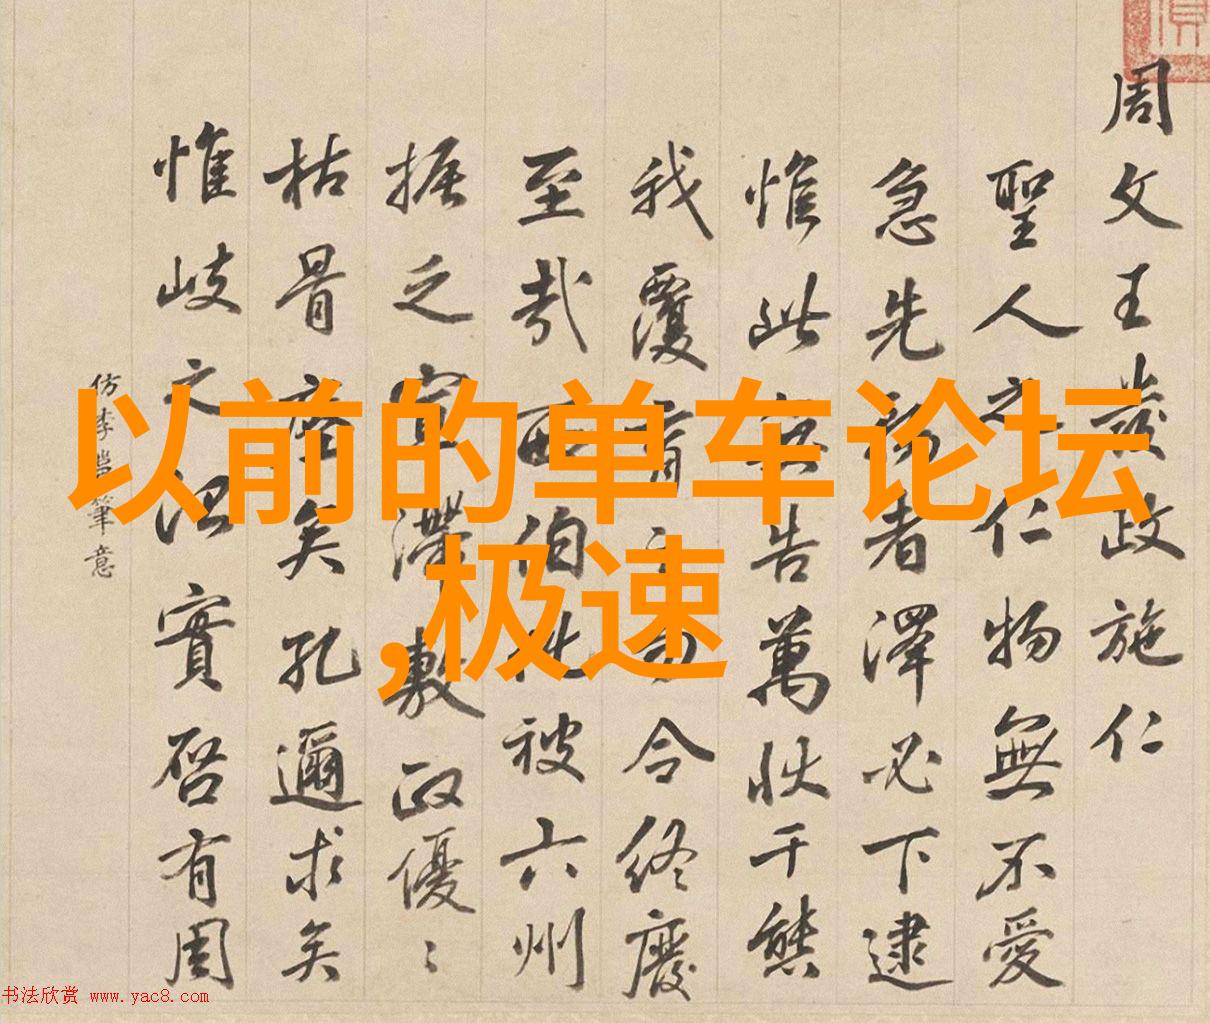 以前的单车论坛
,极速
周文王發政施仁
聖人之仁物無不愛
急先者澤必下逮
惟此無告萬狀千態
我覆育之勿令終廢
至哉西伯化被六州
振之滯敷政優〻
枯骨瘞矣孔邇求矣
惟岐之治實啓有周
仿李邕筆意
书法欣赏 www.yac8.com